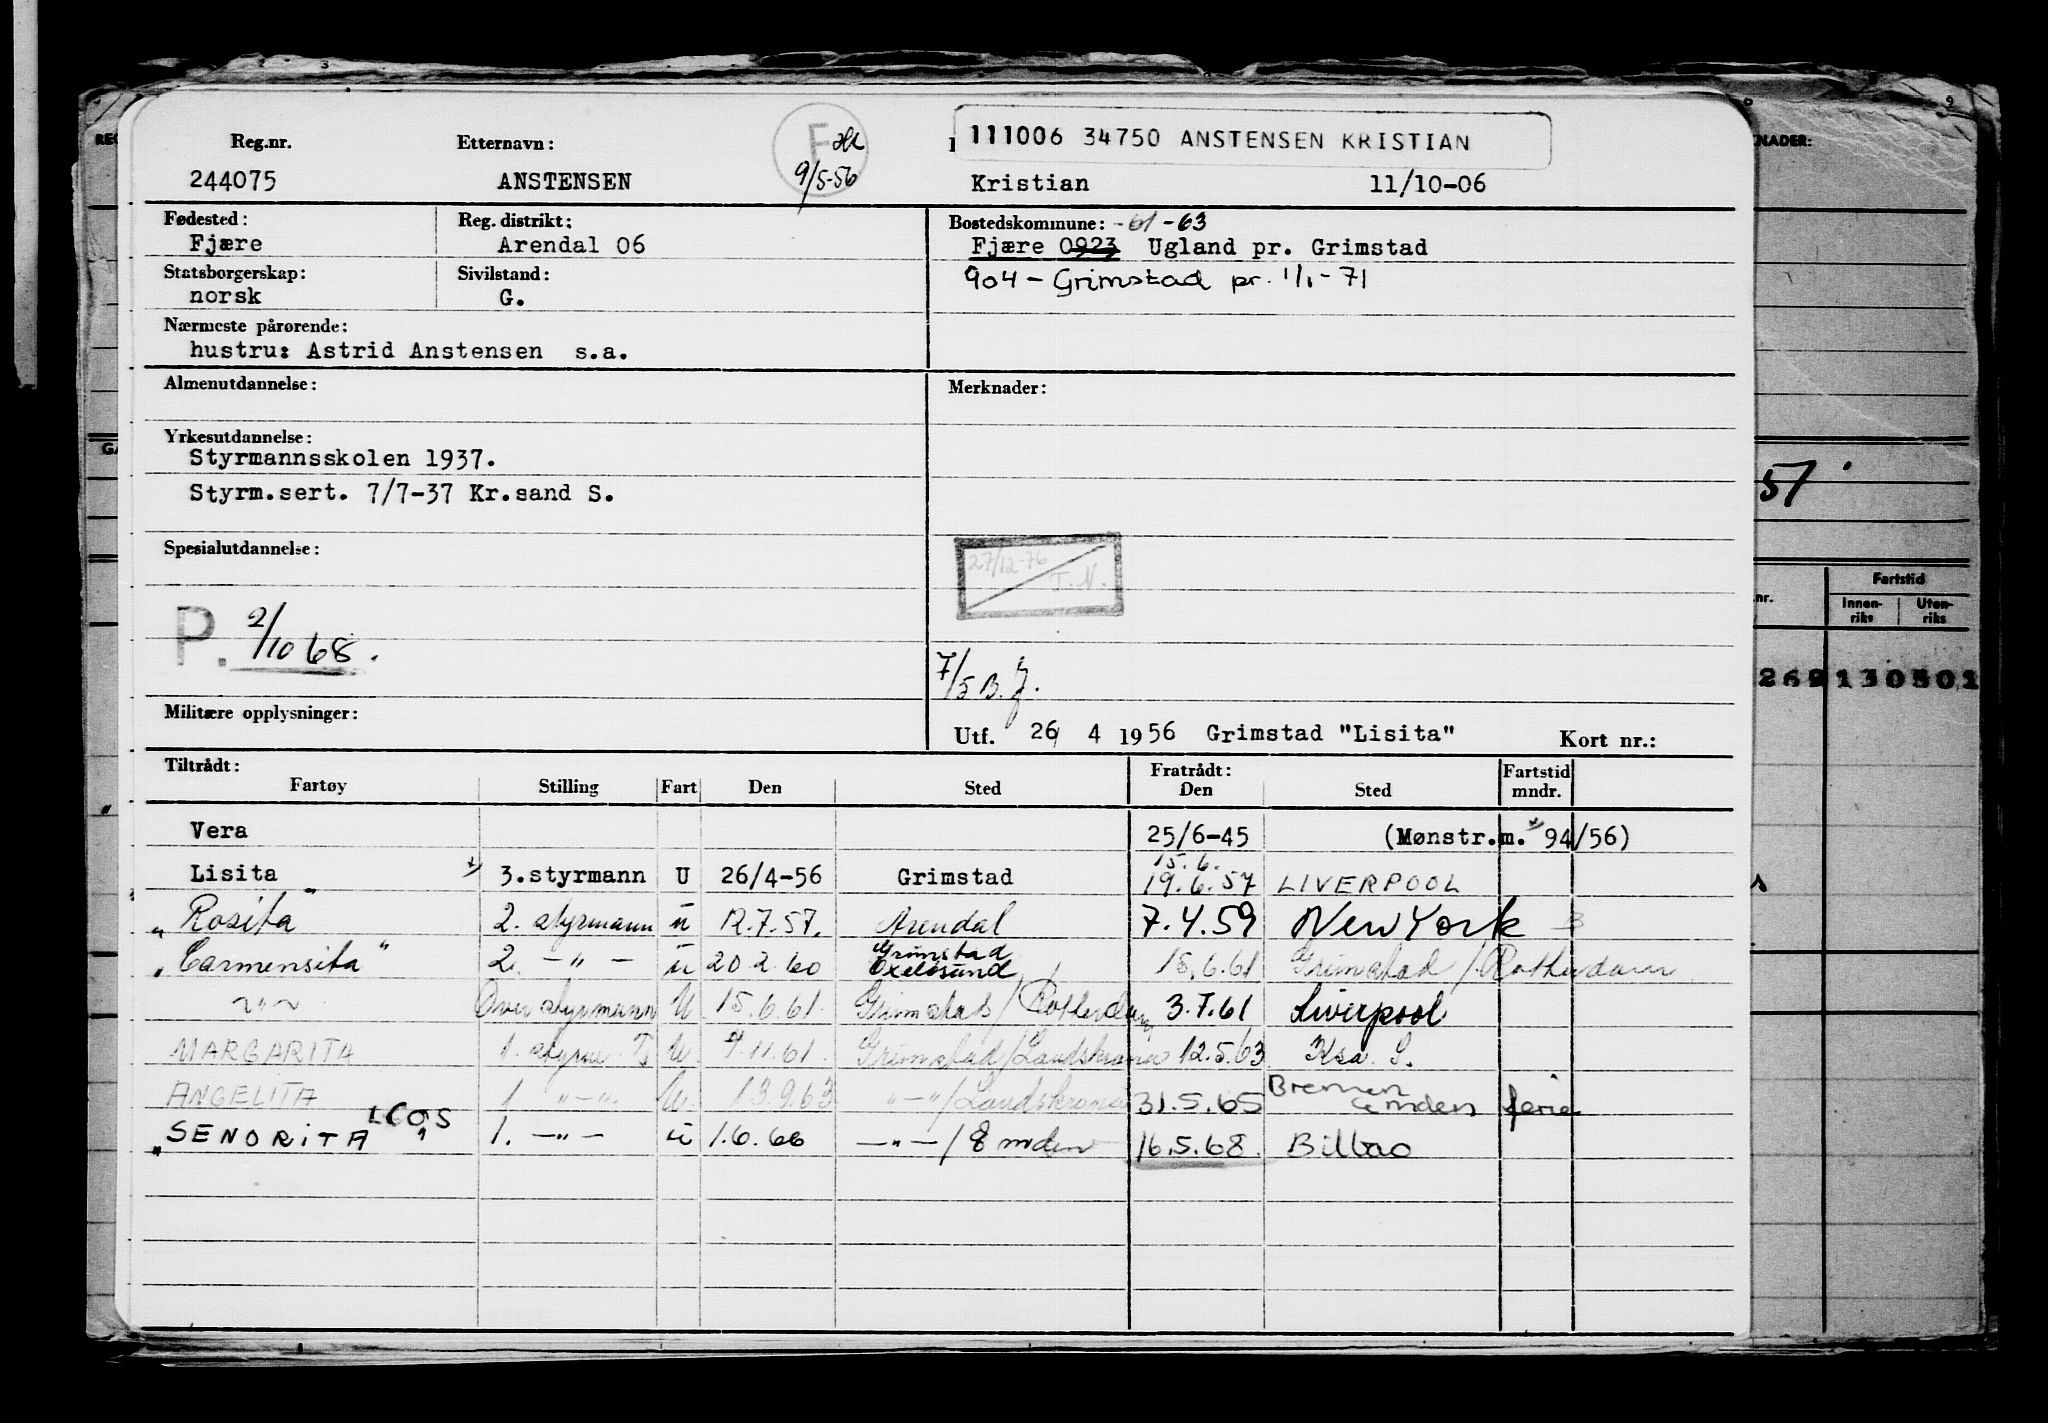 111006 34750 ANSTENSEN KRISTIAN
Reg.nr. Etternavn:
244075 ANSTENSEN 9/5-56 Kristian 11/10-06
Fødested: Reg. distrikt: Bostedskommune: -61-63
Fjære Arendal 06 Fjære 0923 Ugland pr. Grimstad
Statsborgerskap: Sivilstand: 904 - Grimstad pr. 1/1-71
norsk G.
Nærmeste pårørende:
hustru: Astrid Anstensen s.a.
Almenutdannelse: Merknader:
Yrkesutdannelse:
Styrmannsskolen 1937.
Styrm.sert. 7/7-37 Kr.sand S.
Spesialutdannelse:
27/12-76
T.N.
P. 2/10 68.
7/5 B.J.
Militære opplysninger:
Utf. 26 4 1956 Grimstad "Lisita" Kort nr.:
Tiltrådt: Fratrådt: Fartstid
Fartøy Stilling Fart Den Sted Den Sted mndr.
Vera 25/6-45 (Mønstr.m. 94/56)
15.6.
Lisita 3.styrmann U 26/4-56 Grimstad 19.6.57 LIVERPOOL
"Rosita" 2. styrmann u 12.7.57. Arendal 7.4.59 New York
Grimstad
"Carmensita" 2. -"- u 20 2 60 Oxeløsund 15.6.61 Grimstad / Rotterdam
-"- Over styrmann U 15.6.61 Grimstad / Rotterdam 3.7.61 Liverpool
MARGARITA 1. styrm. U. 9.11.61. Grimstad/Landskrona 12.5.63 Ksa. S.
ANGELITA 1 -"- U. 13.9.63 -"-/Landskrona 31.5.65 Bremen
Emden ferie
LCOS
"SENORITA" 1. -"- u 1.6.66 -"-/Emden 16.5.68. Bilbao
NADER:
51
nr. Fartstid
Innen-
riks Uten-
riks
269130501